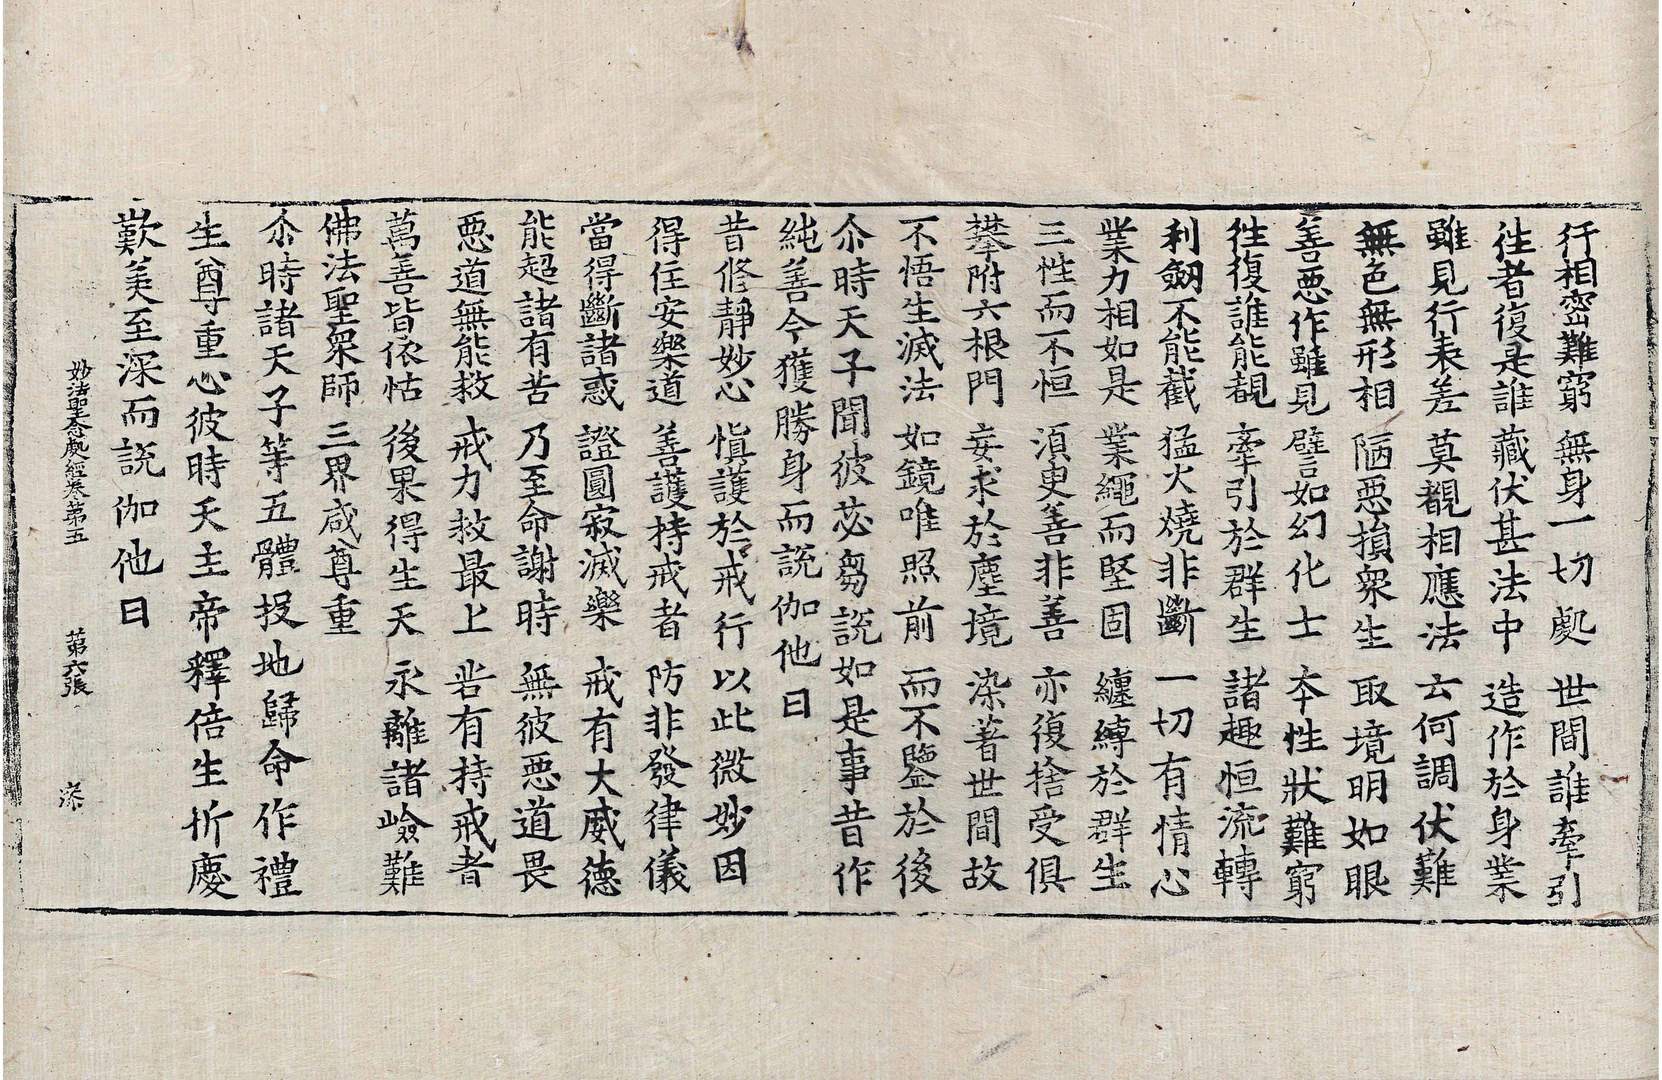 行相密難窮　無身一切處　世間誰牽引
往者復是誰　藏伏甚法中　造作於身業
雖見行来差　莫覩相應法　云何調伏難
無色無形相　陋惡損衆生　取境明如眼
善惡作雖見　譬如幻化士　本性狀難窮
往復誰能覩　牽引於群生　諸趣恒流轉
利劒不能截　猛火燒非斷　一切有情心
業力相如是　業繩而堅固　纏縛於群生
三性而不恒　須臾善非善　亦復捨受俱
攀附六根門　妄求於塵境　染著世間故
不悟生滅法　如鏡唯照前　而不鑒於後
尒時天子聞彼苾芻説如是事昔作
純善今獲勝身而説伽他曰
昔修靜妙心　愼護於戒行　以此微妙因
得住安樂道　善護持戒者　防非發律儀
當得斷諸惑　證圓寂滅樂　戒有大威德
能超諸有苦　乃至命謝時　無彼惡道畏
惡道無能救　戒力救最上　若有持戒者
萬善皆依怙　後果得生天　永離諸嶮難
佛法聖衆師　三界咸尊重
尒時諸天子等五體投地歸命作禮
生尊重心彼時天主帝釋倍生忻慶
歎美至深而説伽他曰
妙法聖念處經卷第五　第六張　漆